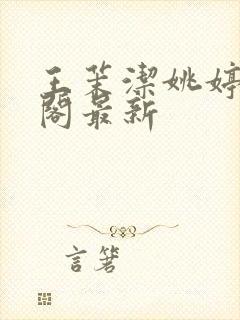 王茉潔姚婷
閣最新
言箸